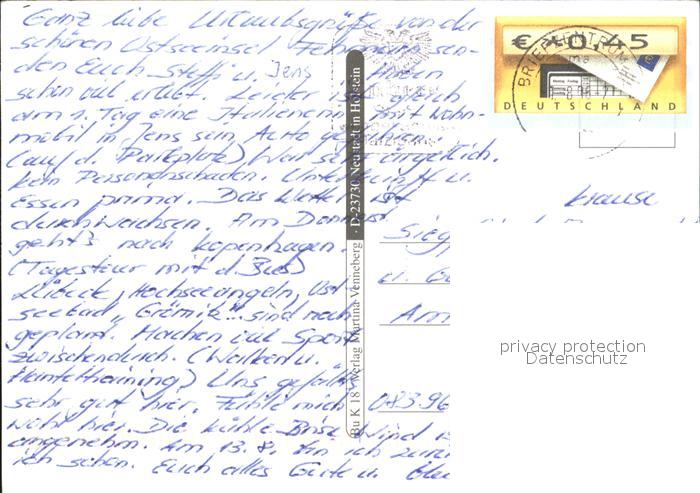 Ganz liebe Urlaubsgrüße von der
schönen Ostseeinsel Fehmarn sen-
den Euch Steffi u. Jens. Haben
schon viel erlebt. Leider ist gleich
am 1. Tag eine Italienerin mit Wohn-
mobil in Jens sein Auto gefahren.
(auf d. Parkplatz) War sehr ärgerlich.
kein Personenschaden. Unterkunft u.
Essen prima. Das Wetter ist
durchwachsen. Am Donnerst
geht's nach Kopenhagen.
(Tagestour mit d. Bus)
Lübeck, Hochseeangeln, Ost-
seebad "Grömitz" sind noch
geplant. Machen viel Sport
zwischendurch. (Walken u.
Hanteltraining) Uns gefällt's
sehr gut hier. Fühle mich
wohl hier. Die kühle Brise Wind is
angenehm. Am 13.8. bin ich zurü
ich schon. Euch alles Gute u.
€ 0,45
DEUTSCHLAND
BRIEFZENTRUM
Krause
Sieg
Am
08396
Bu K 18 Verlag Martina Venneberg · D-23730 Neustadt in Holstein
privacy protection
Datenschutz